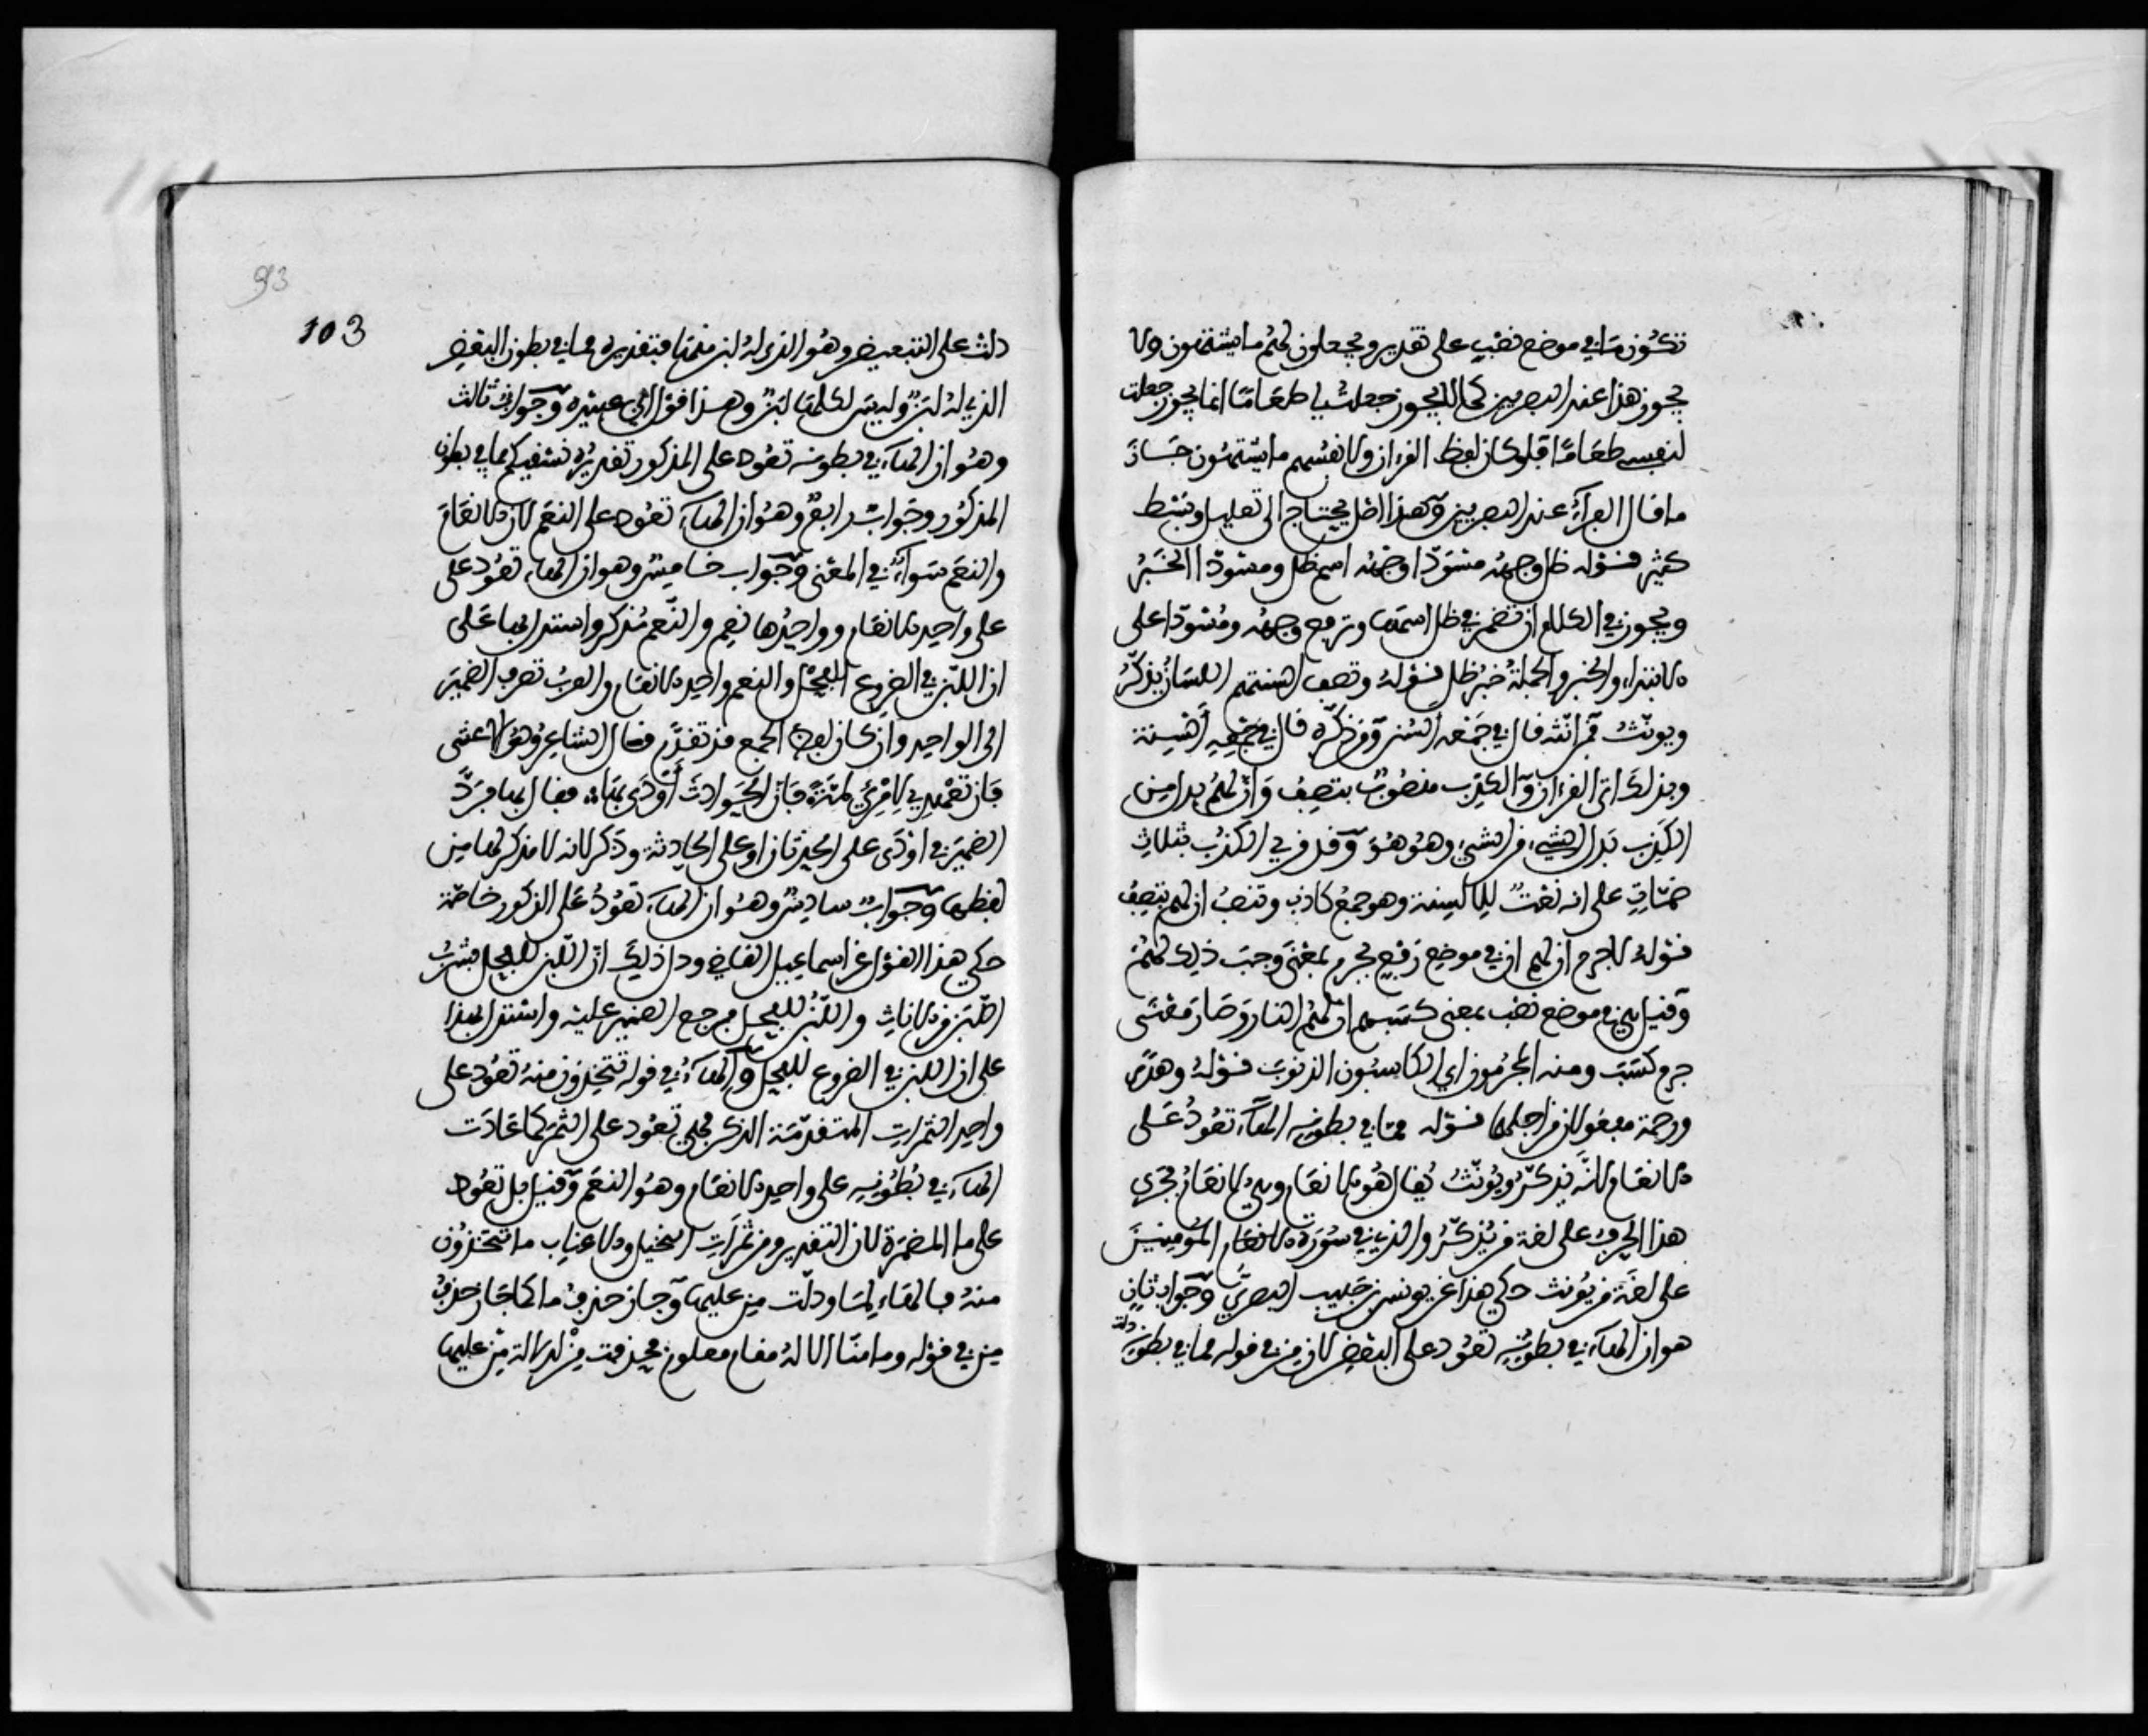 تكون ما في موضع نصب على تقدير ويجعلون لهم ما يشتهون ولا
يجوز هذا عند البصريين كما لا يجوز جعلت لي طعاما انما يجوز جعلت
لنفسي طعاما فلو كان لفظ القرءان ولانفسهم ما يشتهون جاز
ما قال الفرآء عند البصريين وهذا اصل يحتاج الى تعليل وبسط
كثير قوله ظل وجهه مسودا وجهه اسم ظل ومسودا الخبر
ويجوز في الكلام ان تضمر في ظل اسمها وترفع وجهه ومسودا على
الابتداء والخبر والجملة خبر ظل قوله وتصف السنتهم اللسان يذكر
ويونث فمن انثه قال في جمعه السن ومن ذكره قال في جمعه السنة
وبذلك اتى القرءان والكذب منصوب بتصف وان لهم بدل من
الكذب بدل الشيء من الشيء وهو هو وقد قرئ الكذب بثلاث
ضمات على انه نعت للالسنة وهو جمع كاذب وتنصب ان لهم بتصف
قوله لا جرم ان لهم ان في موضع رفع بجرم بمعنى وجب ذلك لهم
وقيل هي في موضع نصب بمعنى كسبهم ان لهم النار وصار معنى
جرم كسب ومنه المجرمون اي الكاسبون الذنوب قوله وهدى
ورحمة مفعولان من اجلهما قوله مما في بطونه الهآء تعود على
الانعام لانه يذكر ويونث يقال هو الانعام وهي الانعام فجرى
هذا الحرف على لغة من يذكر والذي في سورة الانعام المومنين
على لغة من يونث حكي هذا عن يونس بن حبيب البصري وجواب ثان
هو ان الهآء في بطونه تعود على البعض لان من في قوله مما في بطونه دلت
93
103
دلت على التبعيض وهو الذي له لبن منها فتقديره مما في بطون البعض
الذي له لبن وليس لكلها لبن وهذا قول ابي عبيدة وجواب ثالث
وهو ان الهآء في بطونه تعود على المذكور تقديره نسقيكم مما في بطون
المذكور وجواب رابع وهو ان الهآء تعود على النعم لان الانعام
والنعم سوآء في المعنى وجواب خامس وهو ان الهاء تعود على
على واحد الانعام وواحدها نعم والنعم مذكر واستدل بها على
ان اللبن في الضروع للفحل والنعم واحد الانعام والعرب تصرف الضمير
الى الواحد وان كان لفظ الجمع قد تقدم قال الشاعر وهو الاعشى
فان تعهديني لامرئ لمة فان الحوادث اودى بها فقال بها فرد
الضمير في اودى على الحدثان او على الحادثة وذكر لانه لا مذكر لها من
لفظها وجواب سادس وهو ان الهآء تعود على الذكور خاصة
حكي هذا القول عن اسماعيل القاضي ودل ذلك ان اللبن للفحل فشرب
اللبن من الاناث واللبن للفحل فرجع الضمير عليه واستدل بهذا
على ان اللبن في الضروع للفحل والهآء في قوله تتخذون منه تعود على
واحد الثمرات المتقدمة الذكر فهي تعود على الثمر كما عادت
الهآء في بطونه على واحد الانعام وهو النعم وقيل بل تعود
على ما المضمرة لان التقدير ومن ثمرات النخيل والاعناب ما تتخذون
منه فالهاء لما ودلت من عليها وجاز حذف ما كما جاز حذف
من في قوله وما منا الا له مقام معلوم فحذفت من لدلالة من عليها